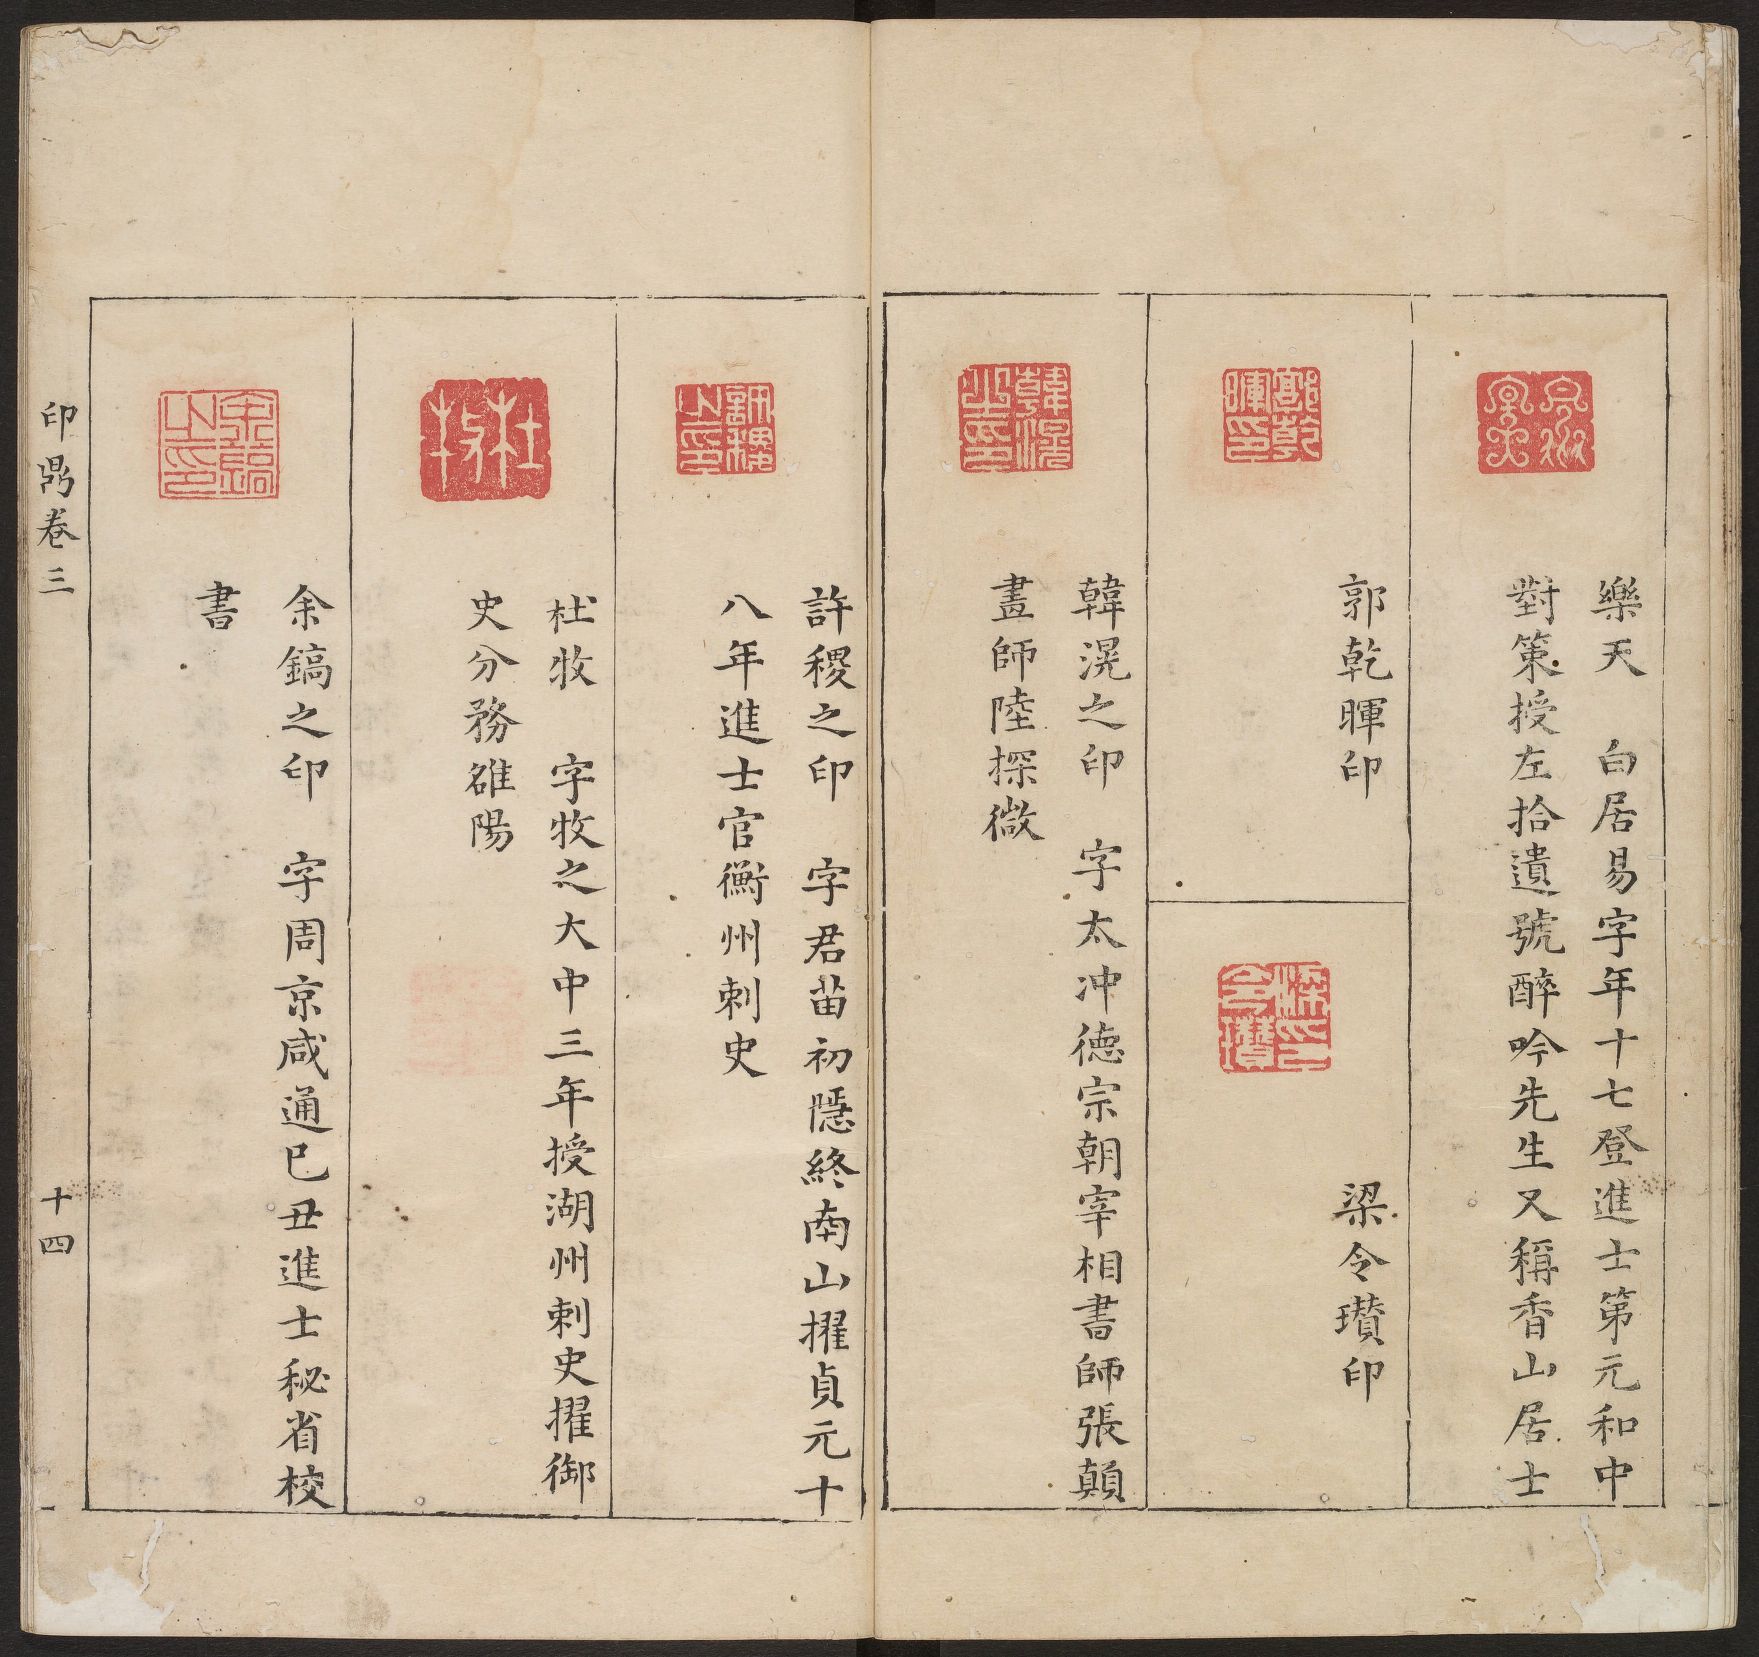 樂天　白居易字年十七登進士第元和中
對策授左拾遺號醉吟先生又稱香山居士
郭乾暉印
梁令瓚印
韓滉之印　字太冲德宗朝宰相書師張顛
畫師陸探微
許稷之印　字君苗初隱終南山擢貞元十
八年進士官衡州刺史
杜牧　字牧之大中三年授湖州刺史擢御
史分務雒陽
余鎬之印　字周京咸通巳丑進士秘省校
書
印鼎卷三
十四
郭乾暉印
韓滉之印
許稷之印
杜牧
余鎬之印